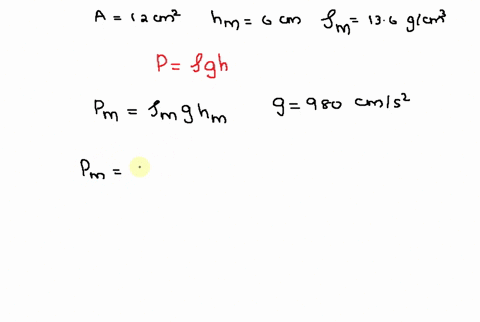 A = 12 cm² hm = 6 cm ρm = 13.6 g/cm³
P = ρgh
Pm = ρm g hm g = 980 cm/s²
Pm =